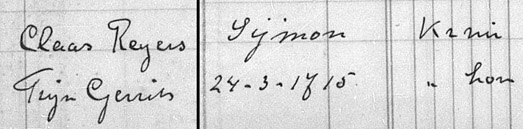 Claas Reyers Sijmon
Trijn Gerrits 24-3-1715 " hon